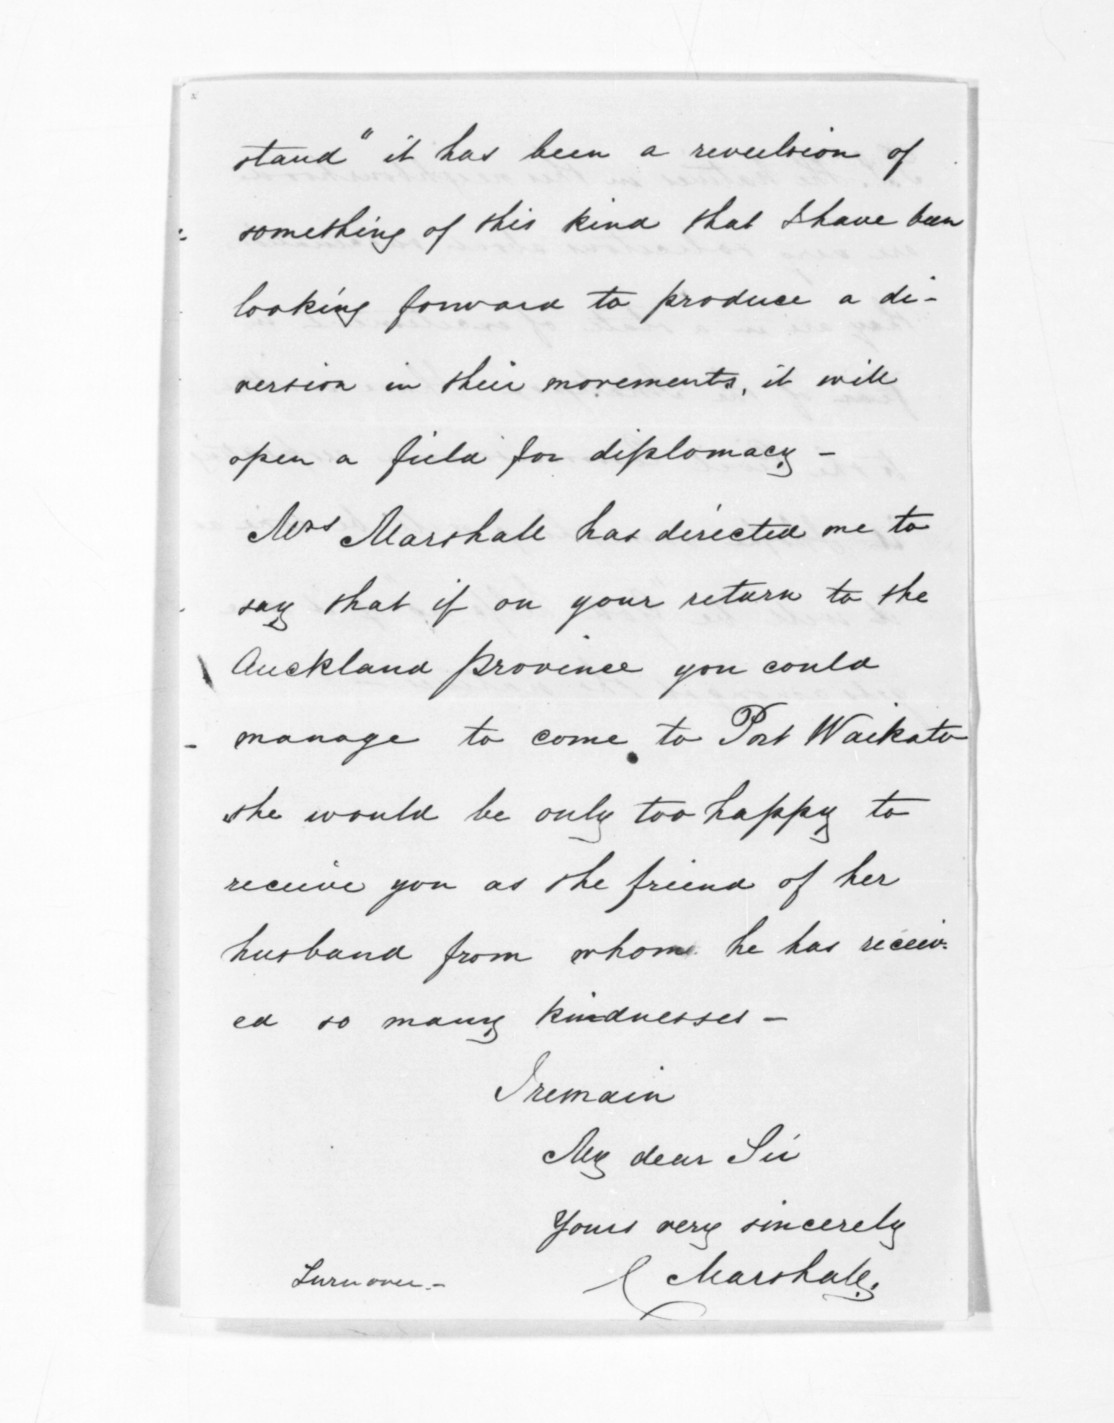 stand" it has been a revulsion of
something of this kind that I have been
looking forward to produce a di-
version in their movements, it will
open a field for diplomacy -
Mrs Marshall has directed me to
say that if on your return to the
Auckland province you could
manage to come to Port Waikato
she would be only too happy to
receive you as the friend of her
husband from whom he has receiv-
ed so many kindnesses -
I remain
My dear Sir
Yours very sincerely
C Marshall.
Turn over. -